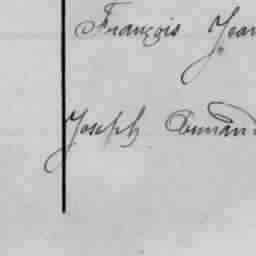 François Jean
Joseph Armand